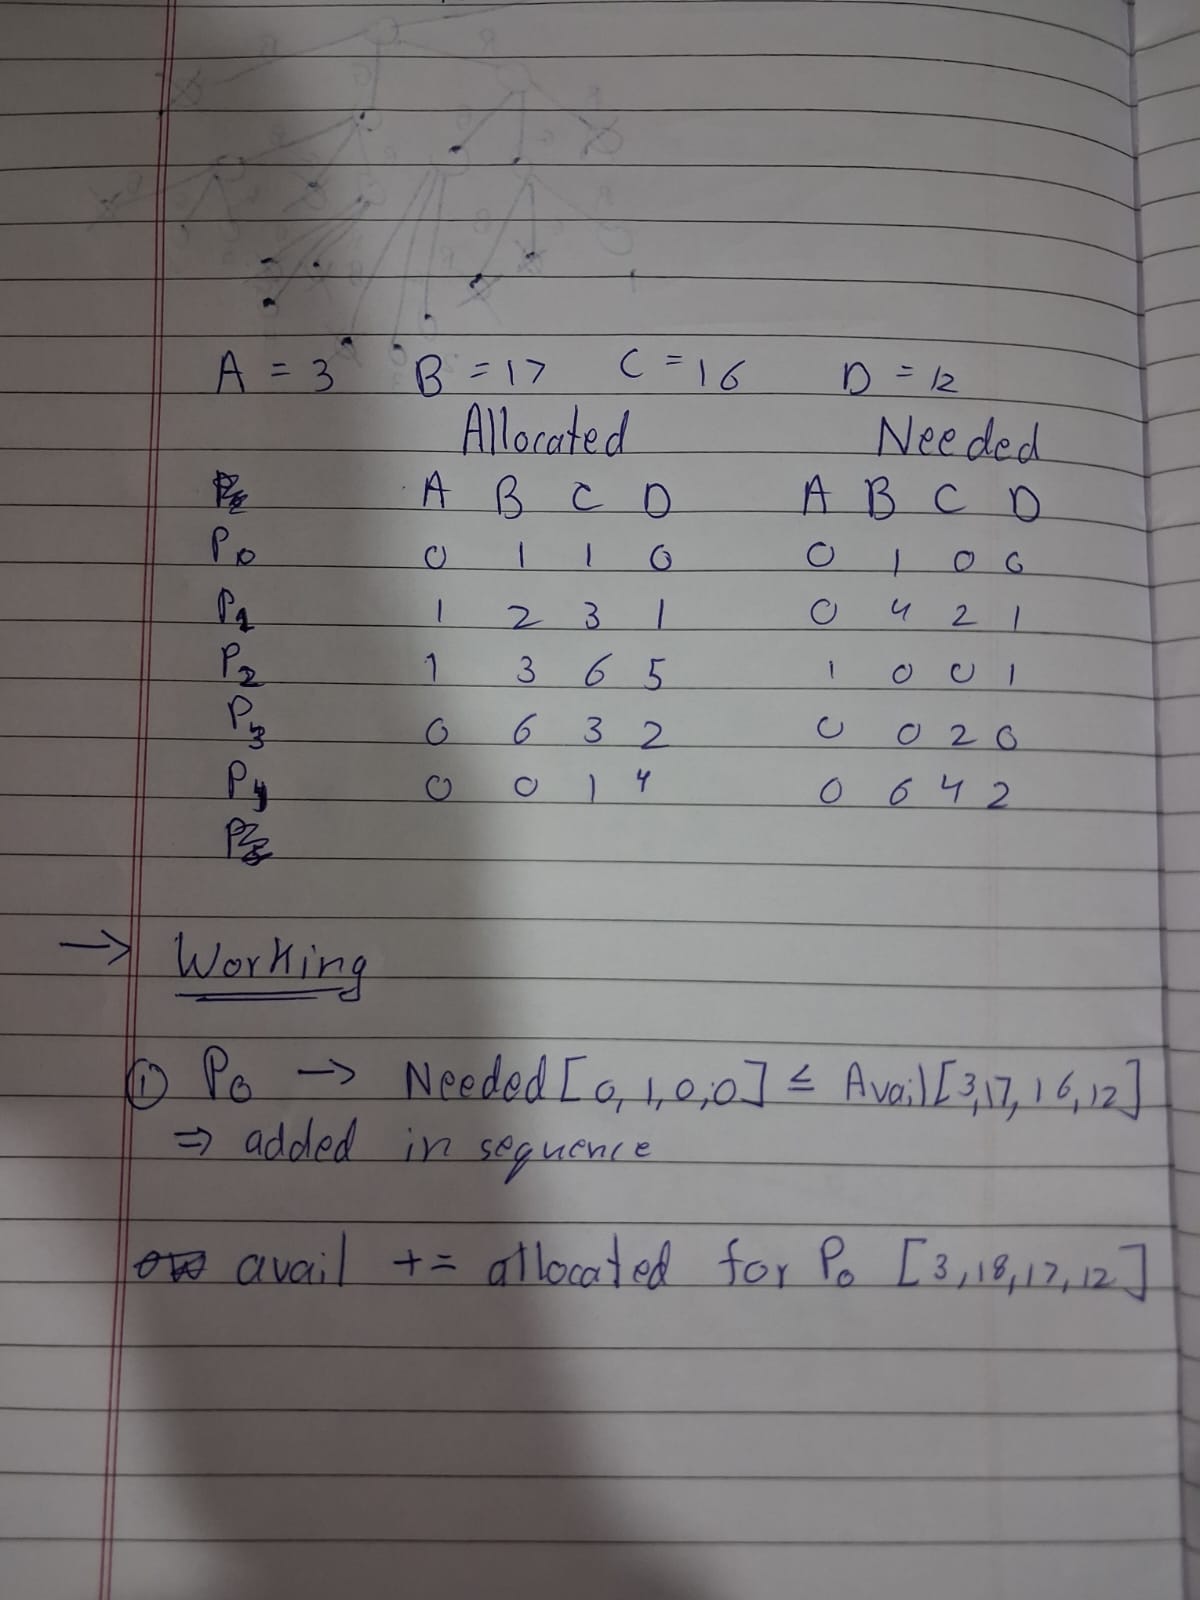 A = 3 B = 17 C = 16 D = 12
Allocated Needed
A B C D A B C D
P0 0 1 1 0 0 1 0 0
P1 1 2 3 1 0 4 2 1
P2 1 3 6 5 1 0 0 1
P3 0 6 3 2 0 0 2 0
P4 0 0 1 4 0 6 4 2
→ Working
① P0 → Needed [0, 1, 0, 0] ≤ Avail [3, 17, 16, 12]
⇒ added in sequence
avail += allocated for P0 [3, 18, 17, 12]